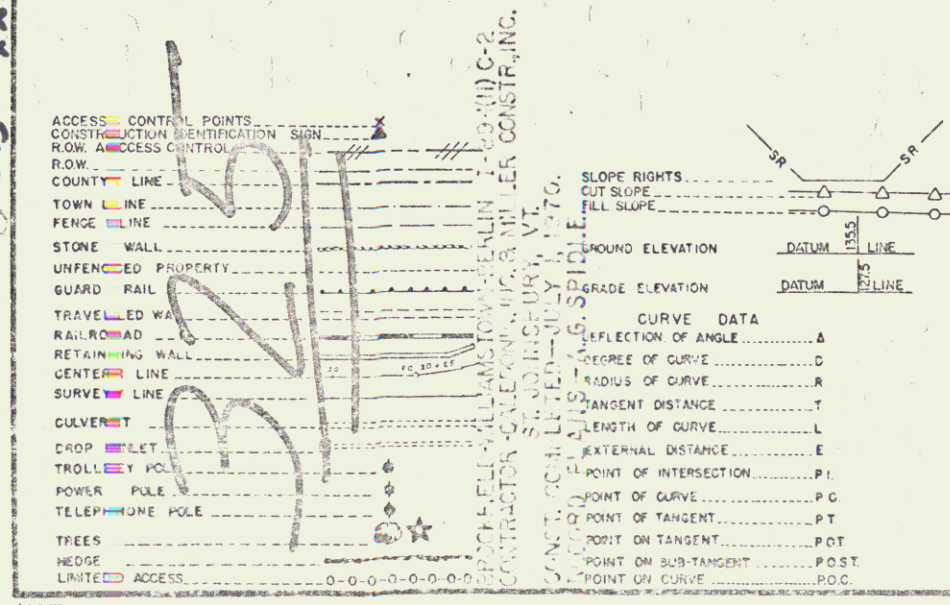 ACCESS CONTROL POINTS
CONSTRUCTION IDENTIFICATION SIGN
R.O.W. ACCESS CONTROL
R.O.W.
COUNTY LINE
TOWN LINE
FENCE LINE
STONE WALL
UNFENCED PROPERTY
GUARD RAIL
TRAVELLED WAY
RAILROAD
RETAINING WALL
CENTER LINE
SURVEY LINE
CULVERT
DROP INLET
TROLLEY POLE
POWER POLE
TELEPHONE POLE
TREES
HEDGE
LIMITED ACCESS
CONTRACTOR-CALEDONIA, INC. & MILLER CONSTR., INC.
ST. JOHNSBURY, VT.
CONST. COMPLETED-JULY 1, 1970.
RECORD PLANS-A.G. SPIDLE
SR
SR
SLOPE RIGHTS
CUT SLOPE
FILL SLOPE
GROUND ELEVATION DATUM 135.5 LINE
GRADE ELEVATION DATUM 127.5 LINE
CURVE DATA
DEFLECTION OF ANGLE Δ
DEGREE OF CURVE D
RADIUS OF CURVE R
TANGENT DISTANCE T
LENGTH OF CURVE L
EXTERNAL DISTANCE E
POINT OF INTERSECTION P.I.
POINT OF CURVE P.C.
POINT OF TANGENT P.T.
POINT ON TANGENT P.O.T.
POINT ON SUB-TANGENT P.O.S.T.
POINT ON CURVE P.O.C.